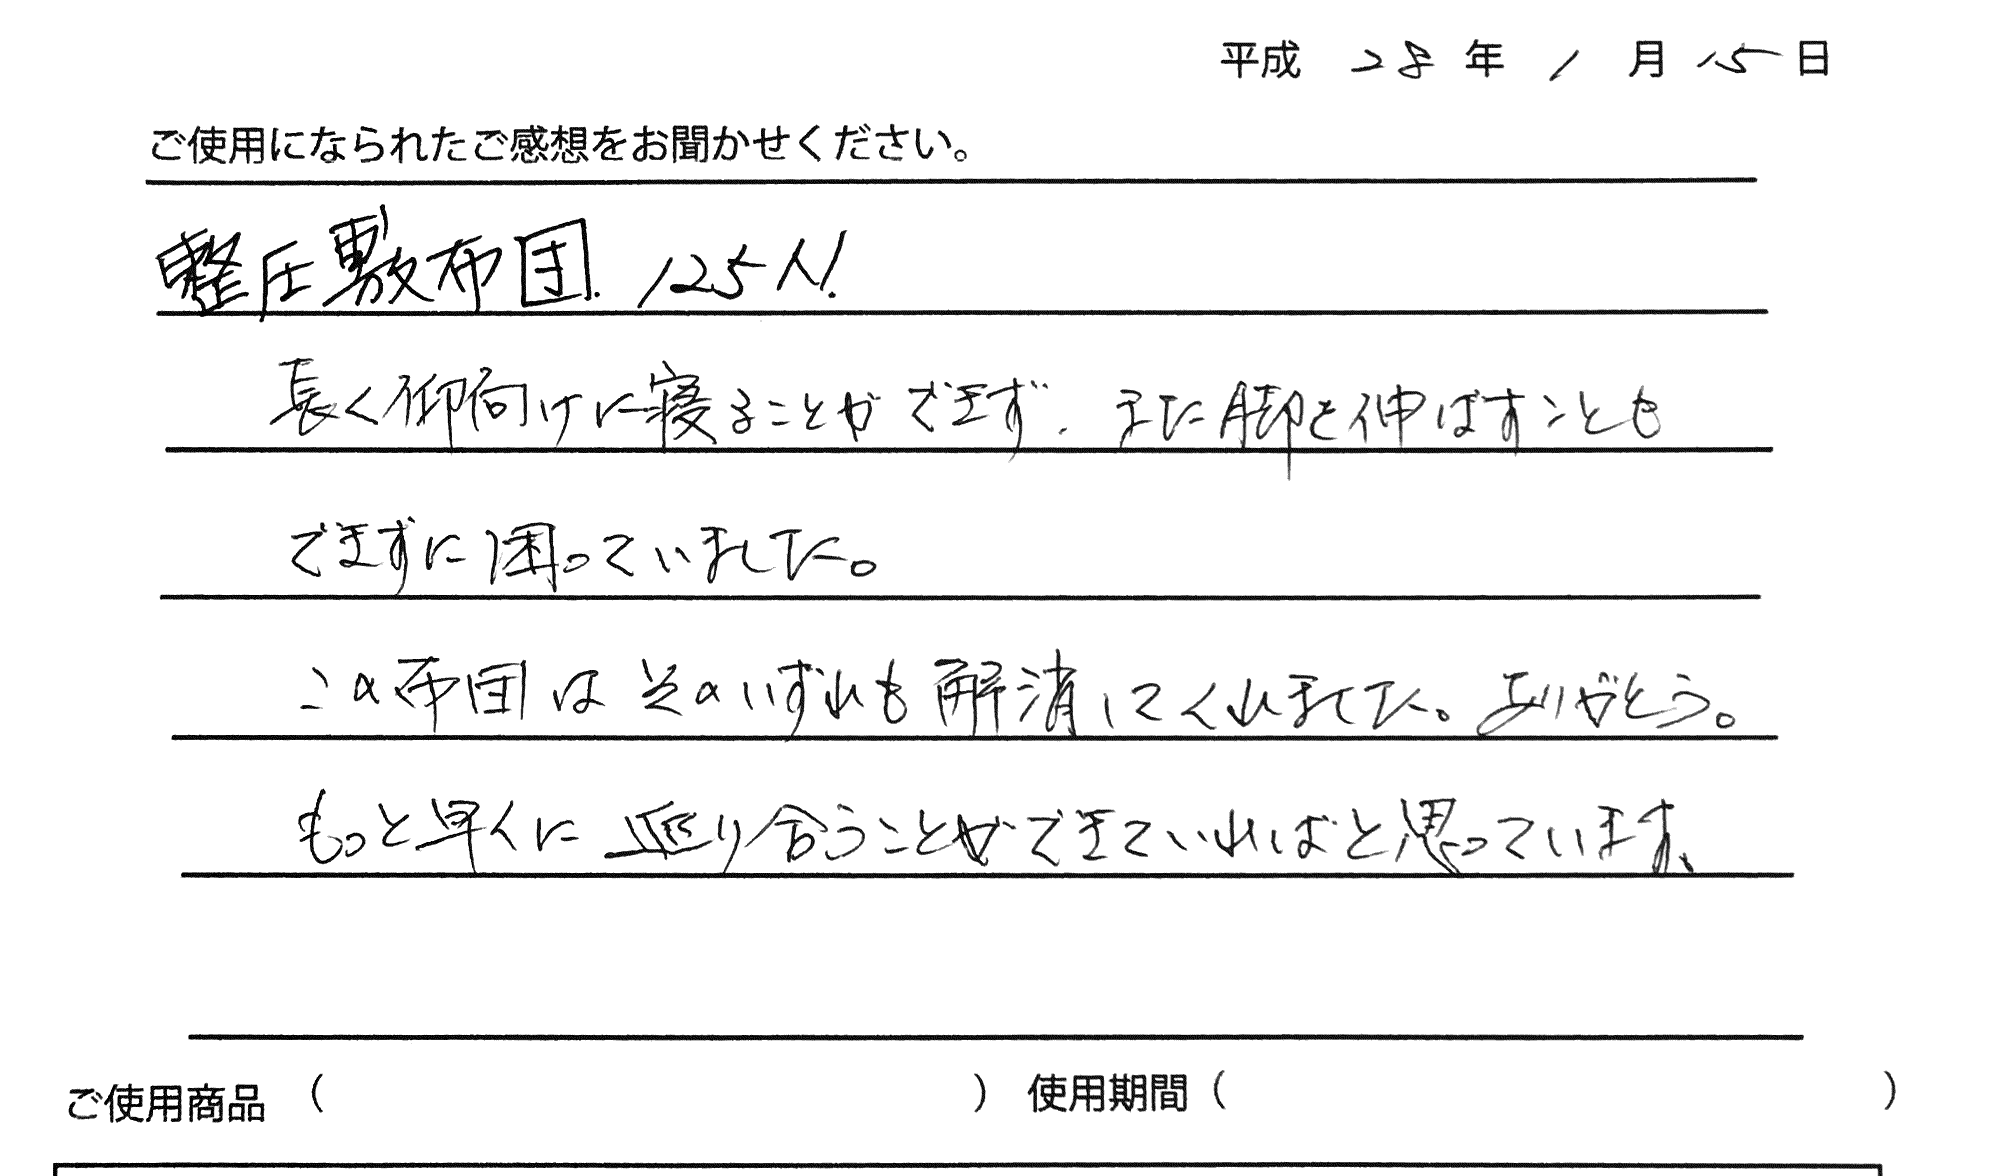 平成 28 年 1 月 15 日
ご使用になられたご感想をお聞かせください。
整圧敷布団. 125N!
長く仰向けに寝ることができず、また脚を伸ばすことも
できずに困っていました。
この布団はそのいずれも解消してくれました。ありがとう。
もっと早くに巡り合うことができていればと思っています。
ご使用商品 ( ) 使用期間 ( )